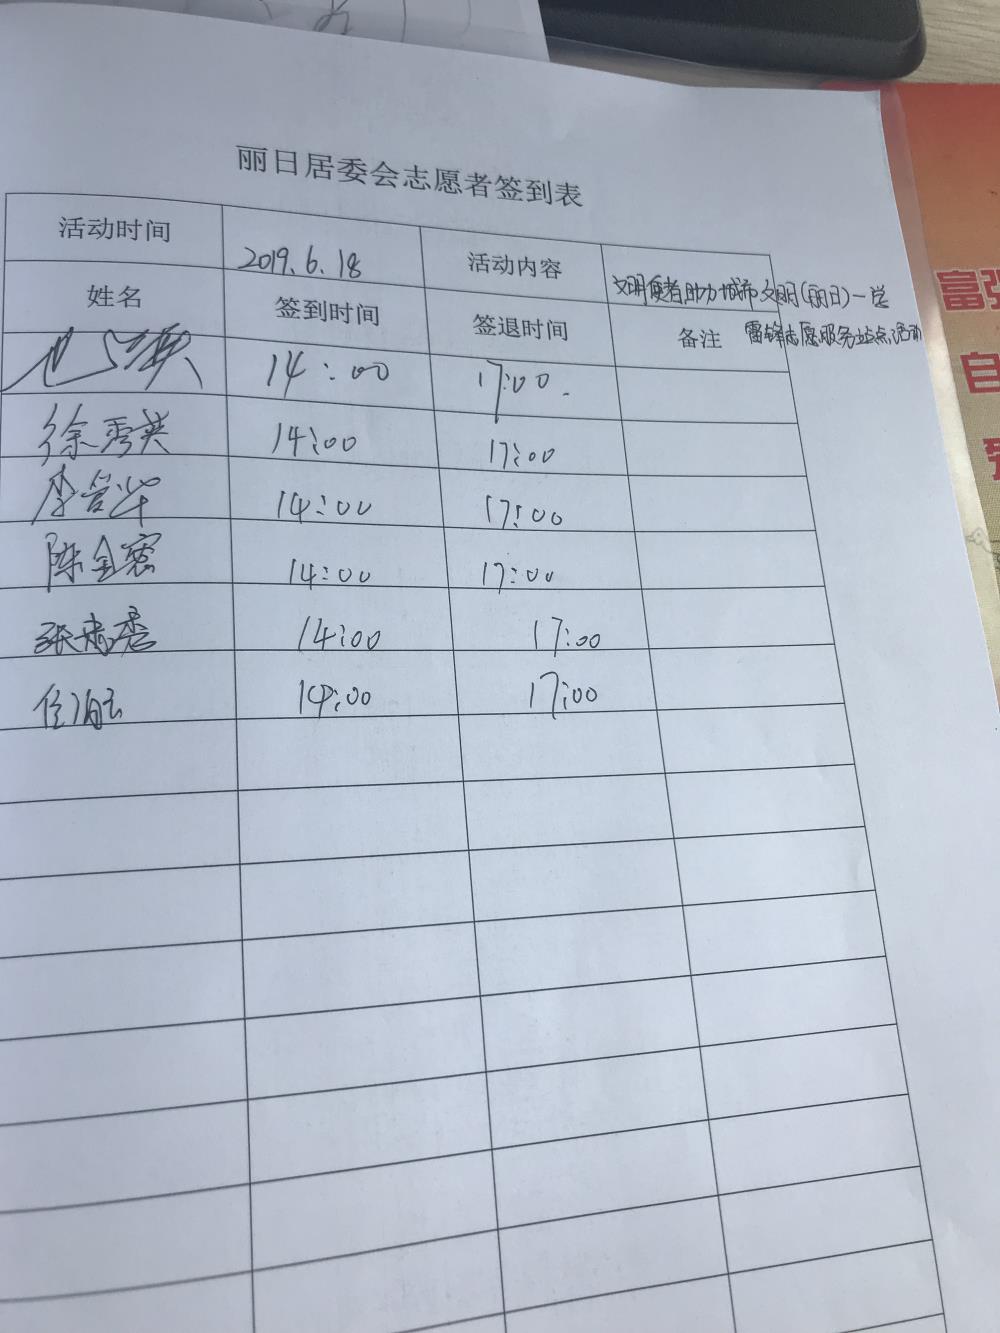 丽日居委会志愿者签到表
活动时间 2019.6.18 活动内容 文明使者助力城市文明(丽日)一学
雷锋志愿服务站点活动
姓名 签到时间 签退时间 备注
14:00 17:00.
徐秀英 14:00 17:00
李 华 14:00 17:00
陈金 14:00 17:00
张 秀 14:00 17:00
任 14:00 17:00
富强
自
爱